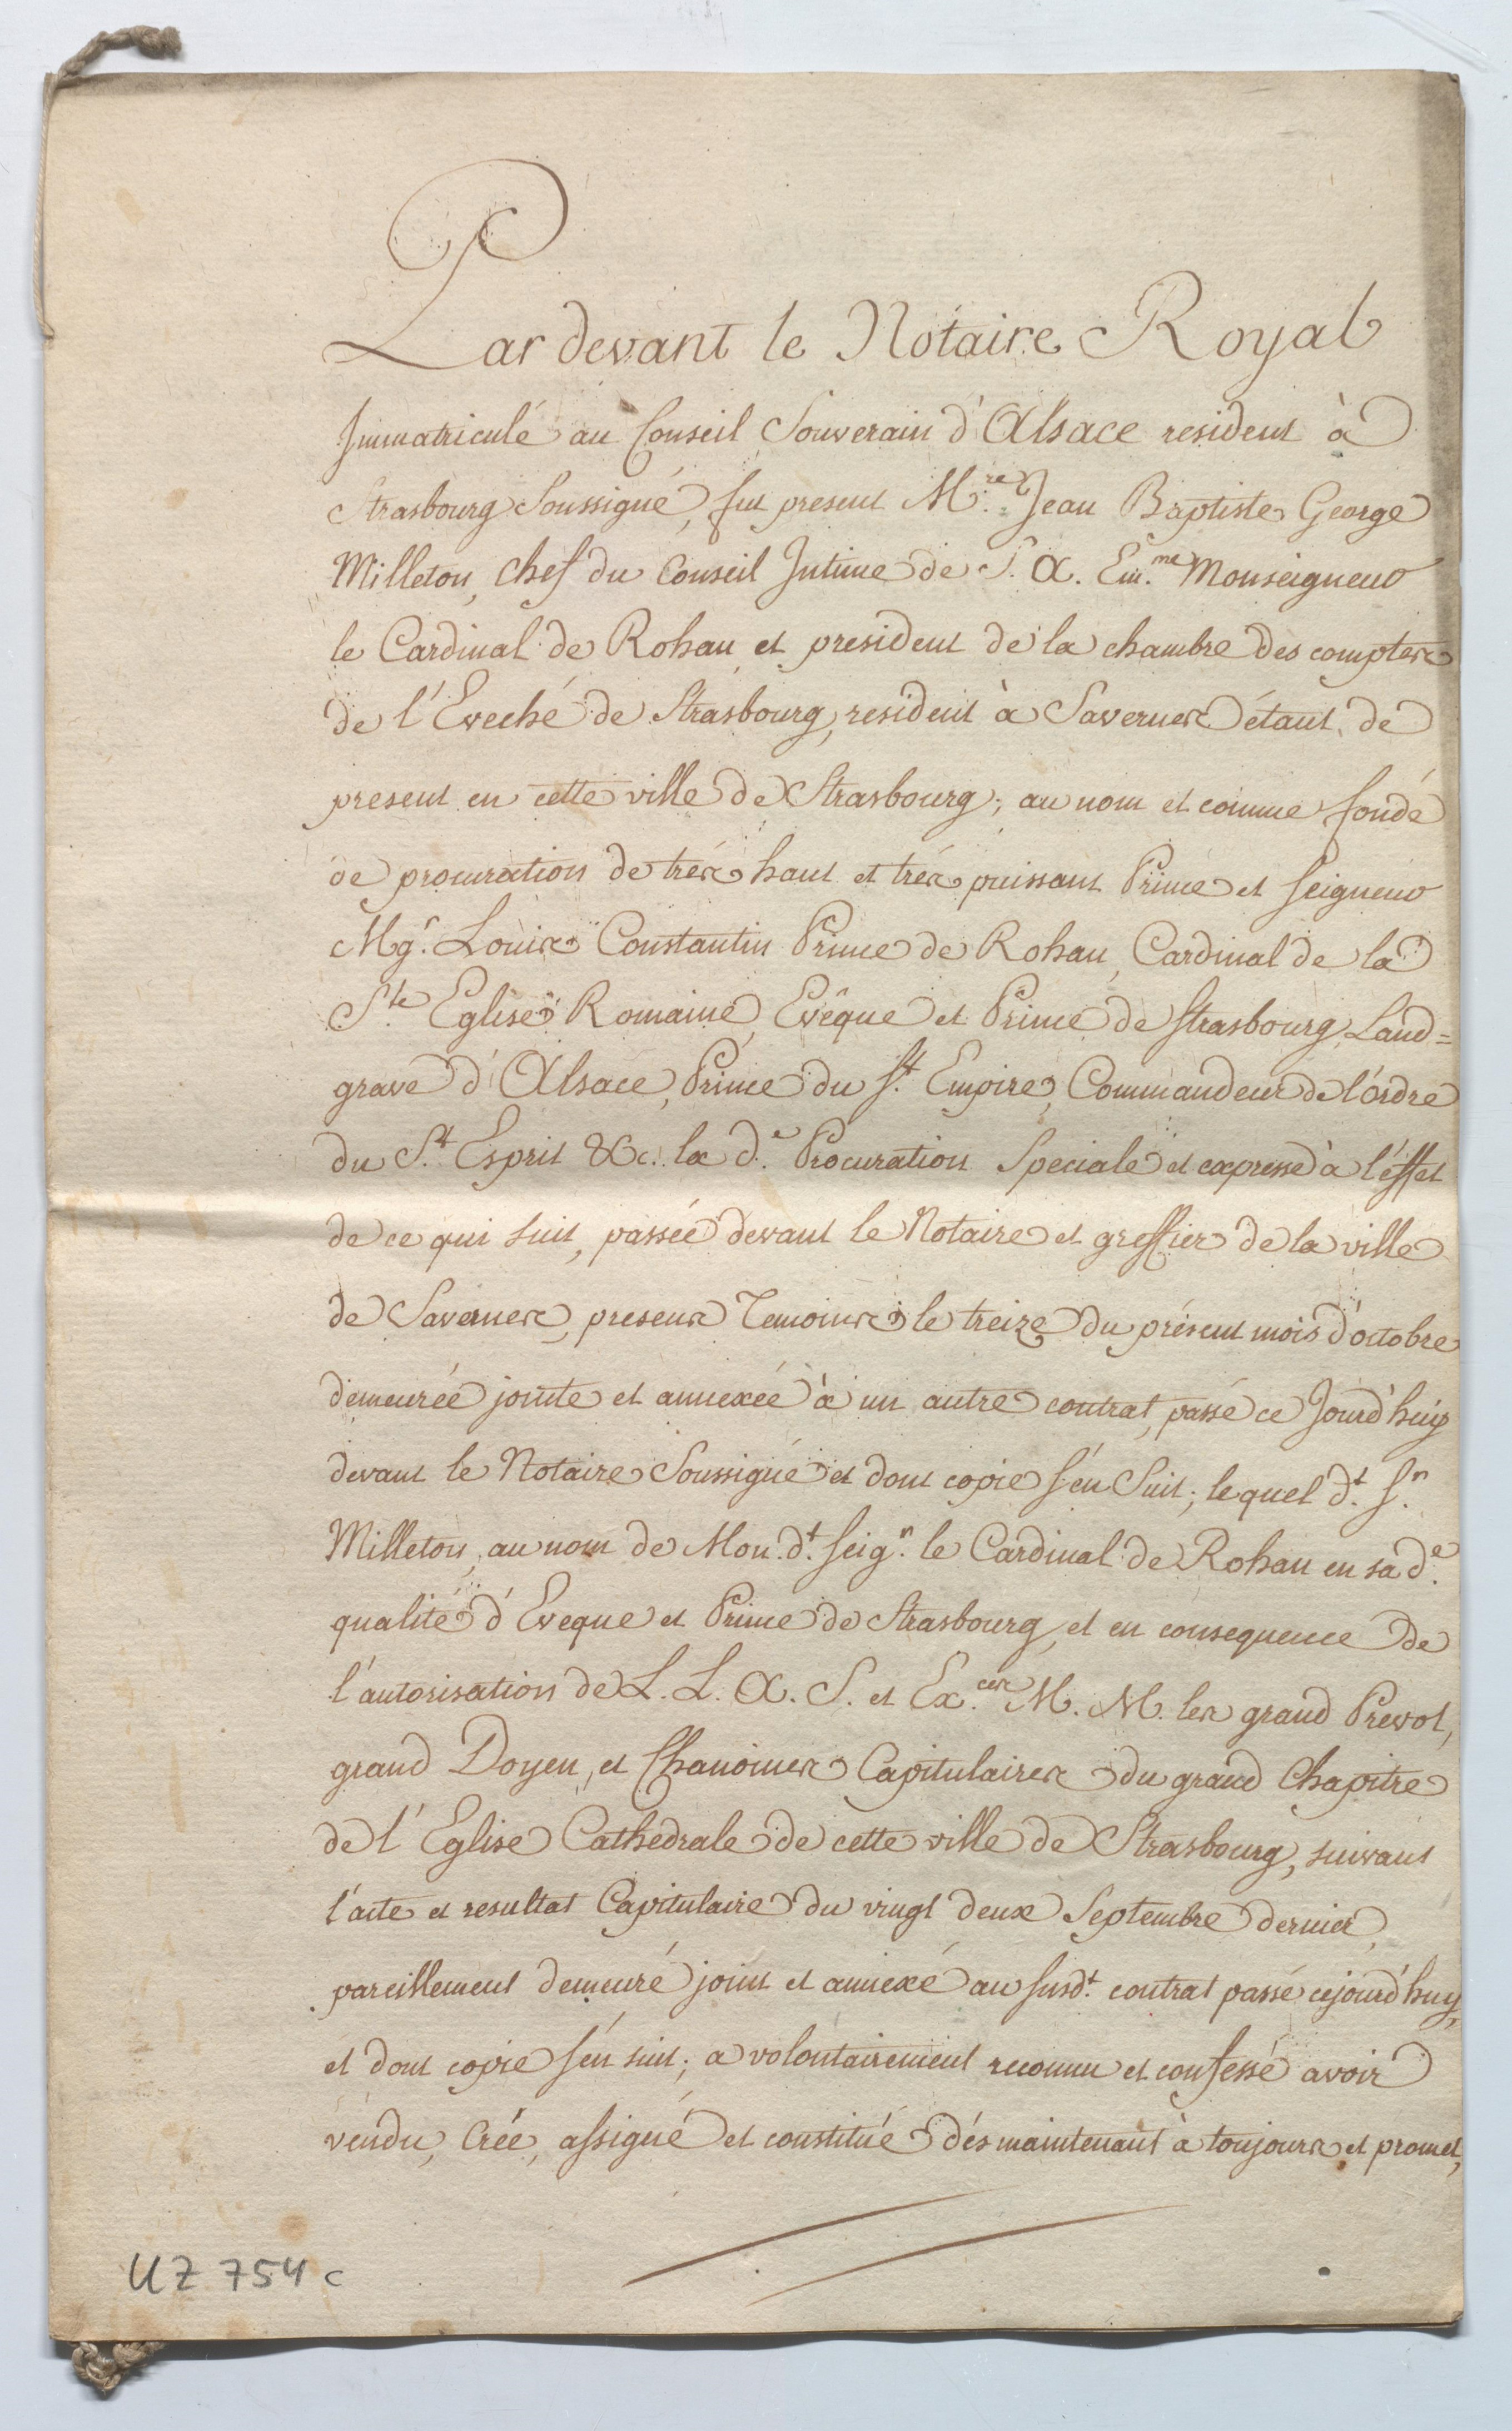 Par devant le Notaire Royal
Immatriculé au Conseil Souverain d'Alsace resident à
Strasbourg Soussigné, fut present M.re Jean Baptiste George
Milleton, chef du Conseil Intime de S. A. Em.me Monseigneur
le Cardinal de Rohan et president de la chambre des comptes
de l'Eveché de Strasbourg, resident à Savernes étant de
present en cette ville de Strasbourg; au nom et comme fondé
de procuration de trés haut et trés puissant Prince et Seigneur
Mg.r Louis Constantin Prince de Rohan, Cardinal de la
S.te Eglise Romaine, Evêque et Prince de Strasbourg, Land=
grave d'Alsace, Prince du S.t Empire, Commandeur de l'ordre
du S.t Esprit &c. la d.e Procuration Speciale et expresse à l'éffet
de ce qui suit, passée devant le Notaire et greffier de la ville
de Savernes, presens Temoins le treize du présent mois d'octobre
demeurée jointe et annexée à un autre contrat, passé ce Jourd'huy
devant le Notaire Soussigné et dont copie s'en Suit; lequel d.t S.r
Milleton, au nom de Mon. d.t Seig.r le Cardinal de Rohan en sa d.e
qualité d'Eveque et Prince de Strasbourg, et en consequence de
l'autorisation de L. L. A. S. et Ex.ces M. M. les grand Prevot,
grand Doyen, et Chanoines Capitulaires du grand Chapitre
de l'Eglise Cathedrale de cette ville de Strasbourg, suivant
l'acte et resultat Capitulaire du vingt deux Septembre dernier,
pareillement demeuré joint et annexé au susd.t contrat passé cejourd'huy,
et dont copie s'en suit; a volontairement reconnu et confessé avoir
vendu, Créé, assigné et constitué dés maintenant à toujours et promet,
UZ 754 c